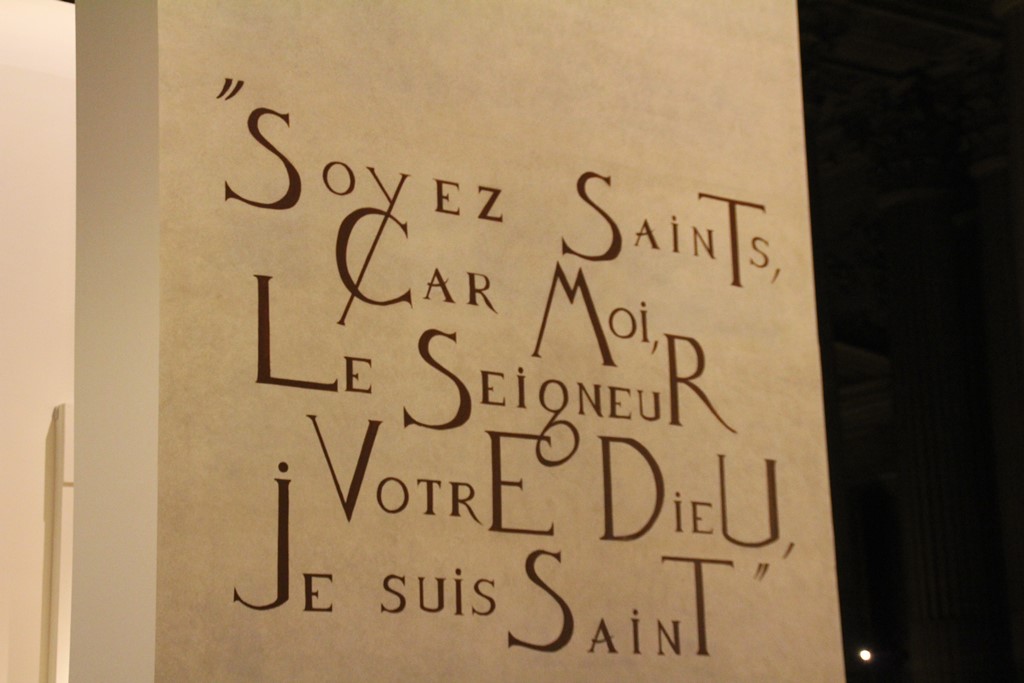 "Soyez Saints,
Car Moi,
Le Seigneur
Votre Dieu,
Je suis Saint"